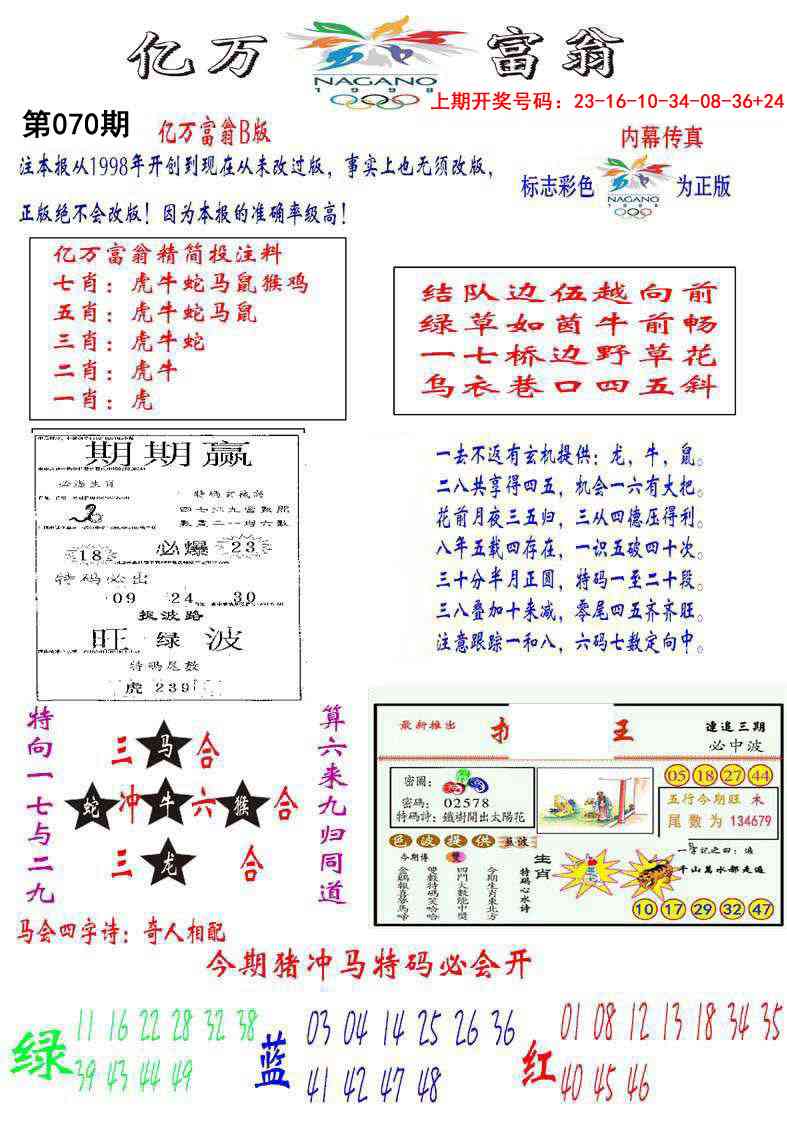 亿万富翁
NAGANO
1998
上期开奖号码：23-16-10-34-08-36+24
第070期
亿万富翁B版
内幕传真
注本报从1998年开创到现在从未改过版，事实上也无须改版，
正版绝不会改版！因为本报的准确率级高！
标志彩色
NAGANO
1998
为正版
亿万富翁精简投注料
七肖：虎牛蛇马鼠猴鸡
五肖：虎牛蛇马鼠
三肖：虎牛蛇
二肖：虎牛
一肖：虎
结队边伍越向前
绿草如茵牛前畅
一七桥边野草花
乌衣巷口四五斜
期期赢
必爆
18
23
特码必出
09 24 30
旺绿波
特码尾数
虎239
一去不返有玄机提供：龙，牛，鼠。
二八共享得四五，机会一六有大把。
花前月夜三五归，三从四德压得利。
八年五载四存在，一识五破四十次。
三十分半月正圆，特码一至二十段。
三八叠加十来减，零尾四五齐齐旺。
注意跟踪一和八，六码七数定向中。
特向一七与二九
三马合
蛇冲牛六猴合
三龙合
算六来九归同道
马会四字诗：奇人相配
最新推出
王
連追三期
必中波
密圖：
密碼：02578
特碼詩：鐵樹開出太陽花
05 18 27 44
五行今期旺 木
尾数为 134679
色波提供 藍波
今期博 雙
金鷄報喜馬啼
雙數特碼笑哈哈
四門大數能中獎
今期生肖東北方
特碼心水詩
生肖
千山萬水都走遍
10 17 29 32 47
今期猪冲马特码必会开
绿
11 16 22 28 32 38
39 43 44 49
蓝
03 04 14 25 26 36
41 42 47 48
红
01 08 12 13 18 34 35
40 45 46